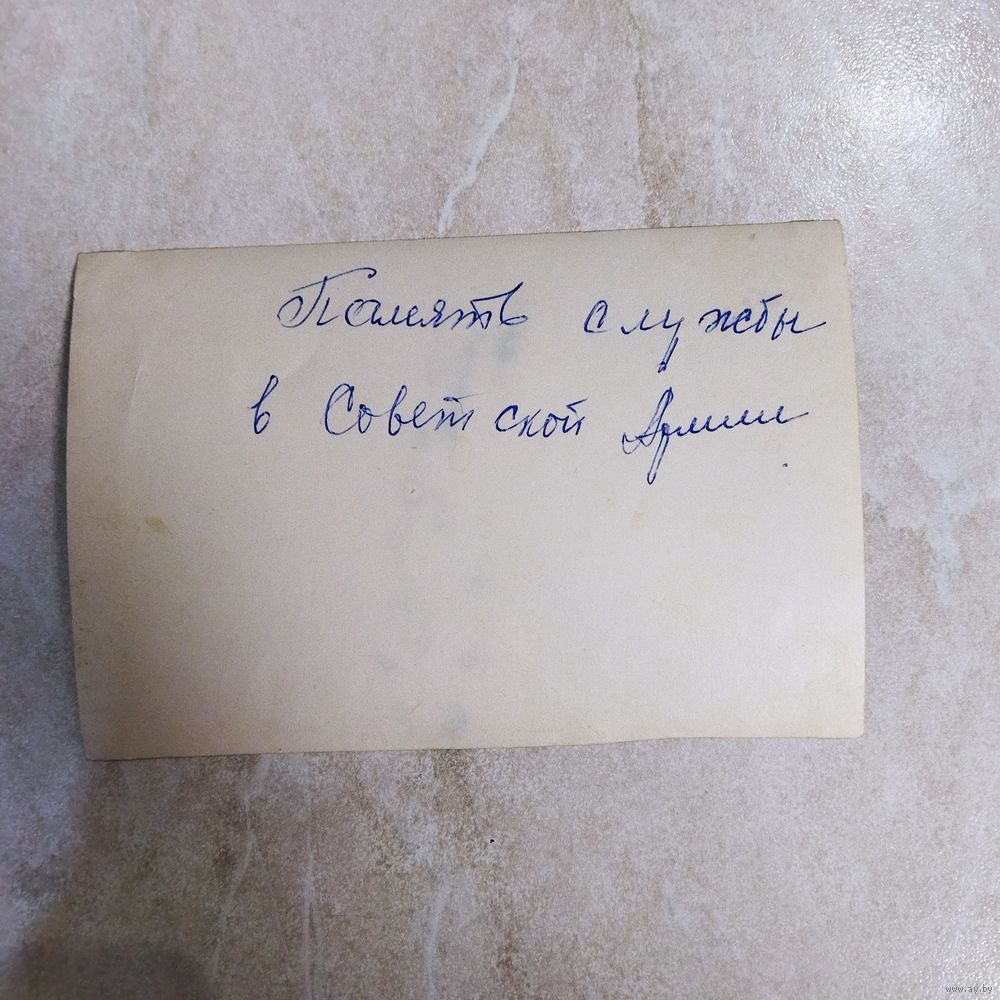 Память службы
в Советской Армии
www.ay.by